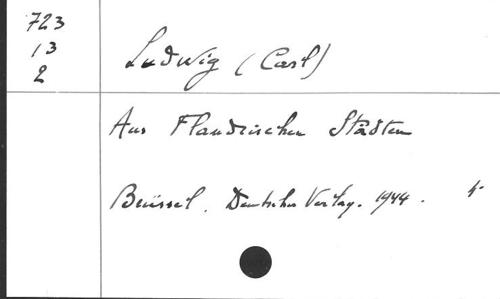 723
13
2
Ludwig (Carl)
Aus Flandrischen Städten
Brüssel. Deutscher Verlag. 1944.